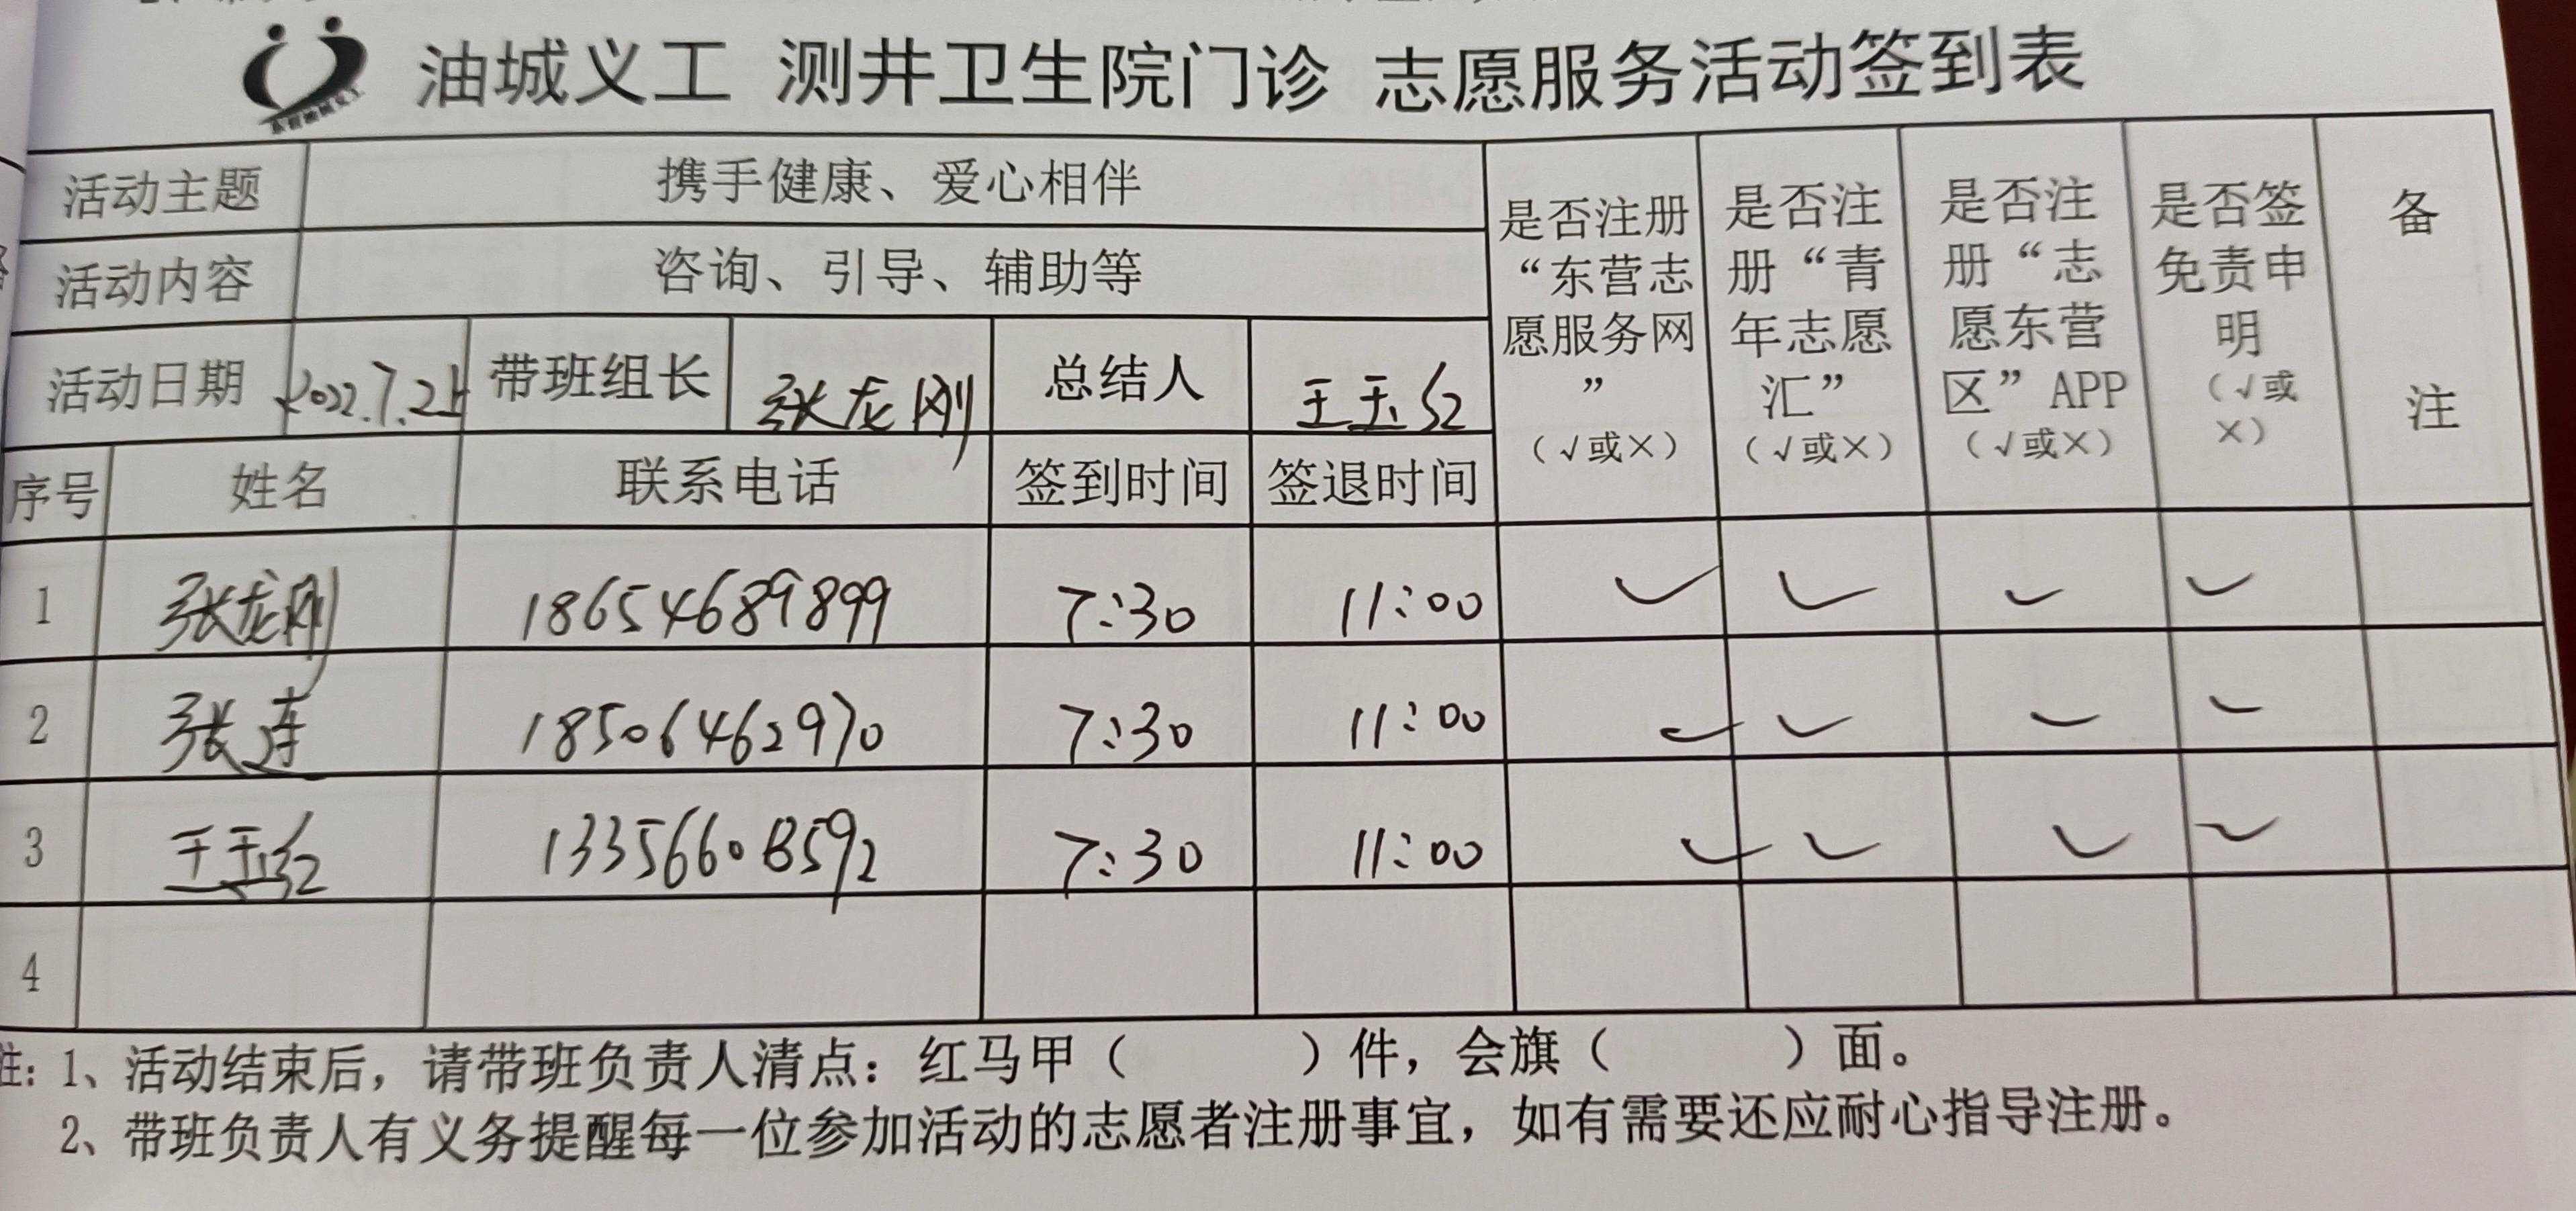 油城义工 测井卫生院门诊 志愿服务活动签到表
活动主题 携手健康、爱心相伴
活动内容 咨询、引导、辅助等
活动日期 2022.7.25 带班组长 张龙刚 总结人 王玉红
是否注册“东营志愿服务网”（√或×）
是否注册“青年志愿汇”（√或×）
是否注册“志愿东营区”APP（√或×）
是否签免责申明（√或×）
备注
序号 姓名 联系电话 签到时间 签退时间
1 张龙刚 18654689899 7:30 11:00 √ √ √ √
2 张连 18506462970 7:30 11:00 √ √ √ √
3 王玉红 13356608592 7:30 11:00 √ √ √ √
4
注：1、活动结束后，请带班负责人清点：红马甲（ ）件，会旗（ ）面。
2、带班负责人有义务提醒每一位参加活动的志愿者注册事宜，如有需要还应耐心指导注册。